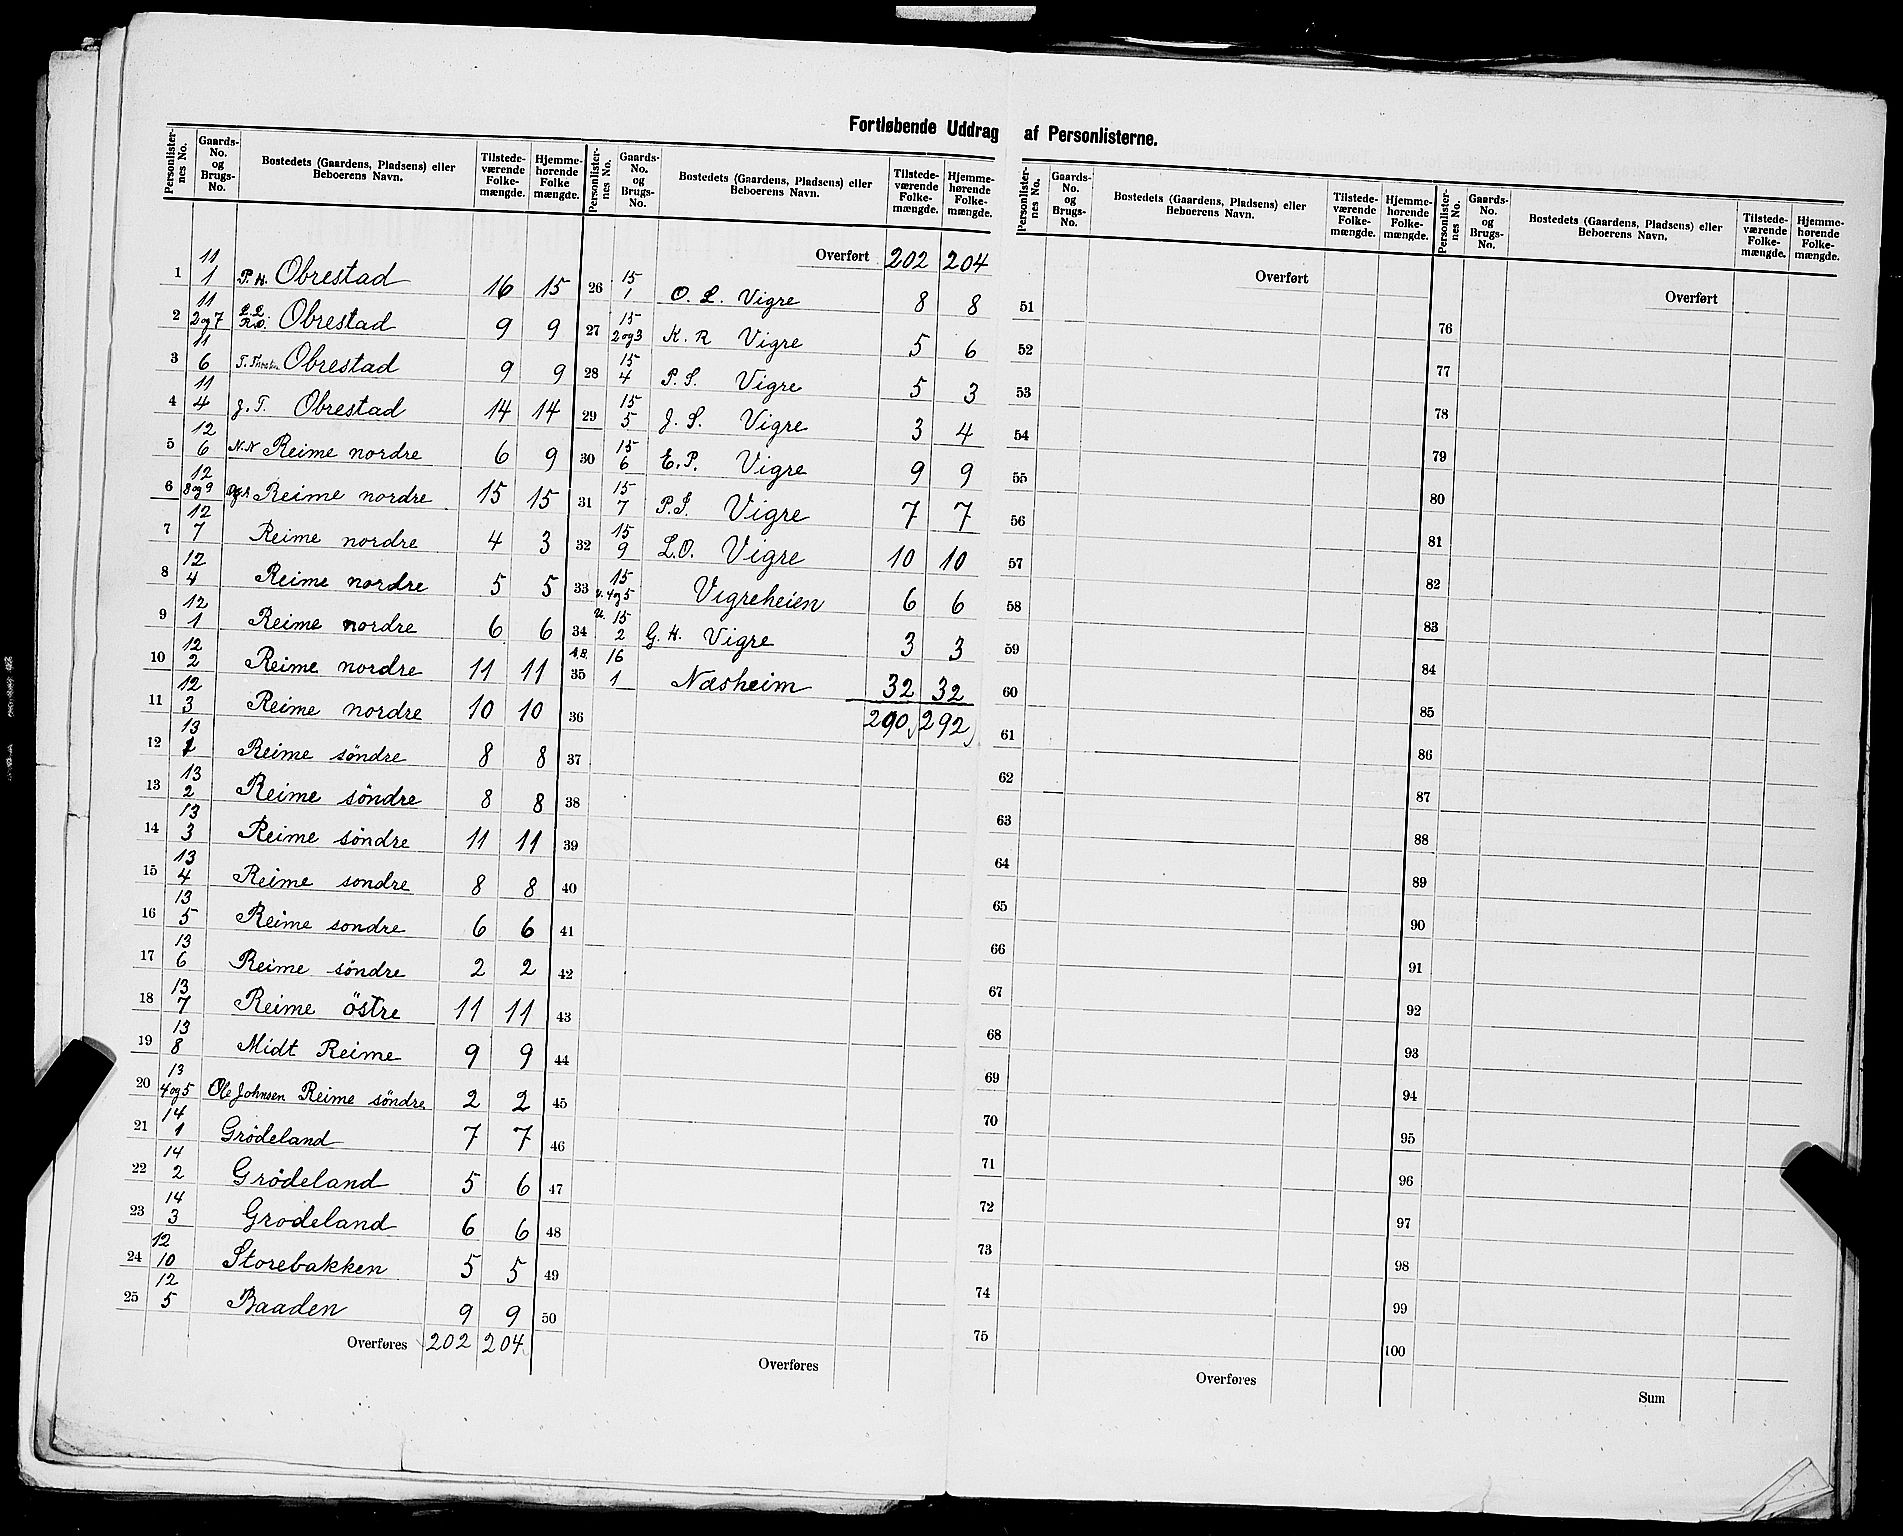 Fortløbende Uddrag af Personlisterne.
Personlister-nes No. | Gaards-No. og Brugs-No. | Bostedets (Gaardens, Pladsens) eller Beboerens Navn. | Tilstede-værende Folke-mængde. | Hjemme-hørende Folke mængde.
1 | 11 1 | P. H. Obrestad | 16 | 15
2 | 11 2 og 7 | Obrestad | 9 | 9
3 | 11 6 | Obrestad | 9 | 9
4 | 11 4 | J. T. Obrestad | 14 | 14
5 | 12 6 | N. N Reime nordre | 6 | 9
6 | 12 8 og 9 | Reime nordre | 15 | 15
7 | 12 7 | Reime nordre | 4 | 3
8 | 12 4 | Reime nordre | 5 | 5
9 | 12 1 | Reime nordre | 6 | 6
10 | 12 2 | Reime nordre | 11 | 11
11 | 12 3 | Reime nordre | 10 | 10
12 | 13 1 | Reime söndre | 8 | 8
13 | 13 2 | Reime söndre | 8 | 8
14 | 13 3 | Reime söndre | 11 | 11
15 | 13 4 | Reime sondre | 8 | 8
16 | 13 5 | Reime sondre | 6 | 6
17 | 13 6 | Reime söndre | 2 | 2
18 | 13 7 | Reime östre | 11 | 11
19 | 13 8 | Midt Reime | 9 | 9
20 | 13 4 og 5 | Ole Johnsen Reime söndre | 2 | 2
21 | 14 1 | Grödeland | 7 | 7
22 | 14 2 | Grödeland | 5 | 6
23 | 14 3 | Grodeland | 6 | 6
24 | 12 10 | Storebakken | 5 | 5
25 | 12 5 | Baaden | 9 | 9
Overføres 202 204
Personlister-nes No. | Gaards-No. og Brugs-No. | Bostedets (Gaardens, Pladsens) eller Beboerens Navn. | Tilstede-værende Folke-mængde. | Hjemme-hørende Folke-mængde.
Overført 202 204
26 | 15 1 | O. L. Vigre | 8 | 8
27 | 15 2 og 3 | K. R Vigre | 5 | 6
28 | 15 4 | P. S. Vigre | 5 | 3
29 | 15 5 | J. S. Vigre | 3 | 4
30 | 15 6 | E. P. Vigre | 9 | 9
31 | 15 7 | P. S. Vigre | 7 | 7
32 | 15 9 | L. O. Vigre | 10 | 10
33 | 15 4 og 5 | Vigreheien | 6 | 6
34 | 15 2 | G. H. Vigre | 3 | 3
35 | 16 1 | Næsheim | 32 | 32
36 | 290 | 292
37
38
39
40
41
42
43
44
45
46
47
48
49
50
Overføres
Personlister-nes No. | Gaards-No. og Brugs-No. | Bostedets (Gaardens, Pladsens) eller Beboerens Navn. | Tilstede-værende Folke-mængde. | Hjemme-hørende Folke-mængde.
Overført
51
52
53
54
55
56
57
58
59
60
61
62
63
64
65
66
67
68
69
70
71
72
73
74
75
Overføres
Personlister-nes No. | Gaards-No. og Brugs-No. | Bostedets (Gaardens, Pladsens) eller Beboerens Navn. | Tilstede-værende Folke-mængde. | Hjemme-hørende Folke-mængde.
Overført
76
77
78
79
80
81
82
83
84
85
86
87
88
89
90
91
92
93
94
95
96
97
98
99
100
Sum